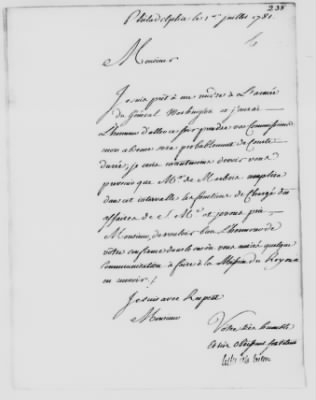 238
Philadelphie le 1er juillet 1781.
Monsieur
Je suis prêt à me rendre à L'armée
du Général Washington et j'aurai
L'honneur d'aller prendre vos Commissions
mon absence sera probablement de Courte
durée; je crois néantmoins devoir vous
prévenir que Mr. de Marbois remplira
dans cet intervalle les fonctions de Chargé des
affaires de S. Mté. et je vous prie,
Monsieur, de vouloir bien L'honorer de
votre confiance dans le cas où vous auriez quelque
communication à faire à la Mission du Roy ou
en recevoir.
Je suis avec Respect
Monsieur
Votre très humble
et très obéissant serviteur